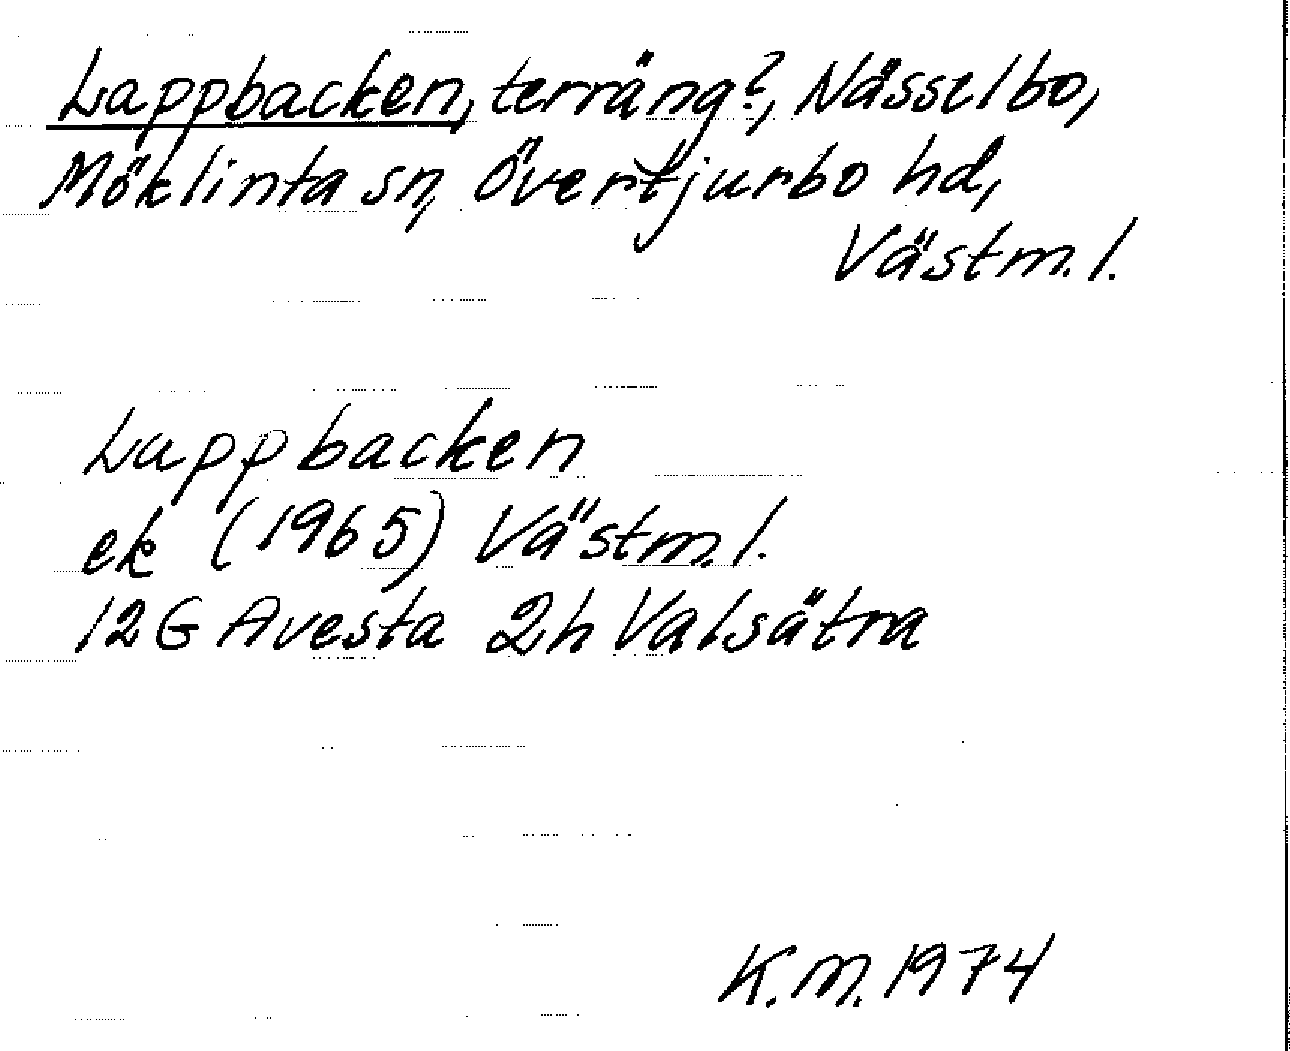 Lappbacken, terräng?, Nässelbo,
Möklinta sn, Övertjurbo hd,
Västm. l.
Lappbacken
ek (1965) Västm. l.
12G Avesta 2h Valsätra
K.M. 1974